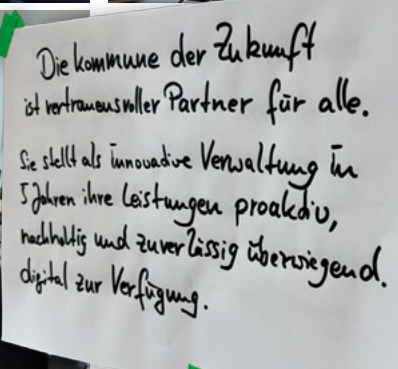 Die Kommune der Zukunft
ist vertrauensvoller Partner für alle.
Sie stellt als innovative Verwaltung in
5 Jahren ihre Leistungen proaktiv,
nachhaltig und zuverlässig überwiegend.
digital zur Verfügung.